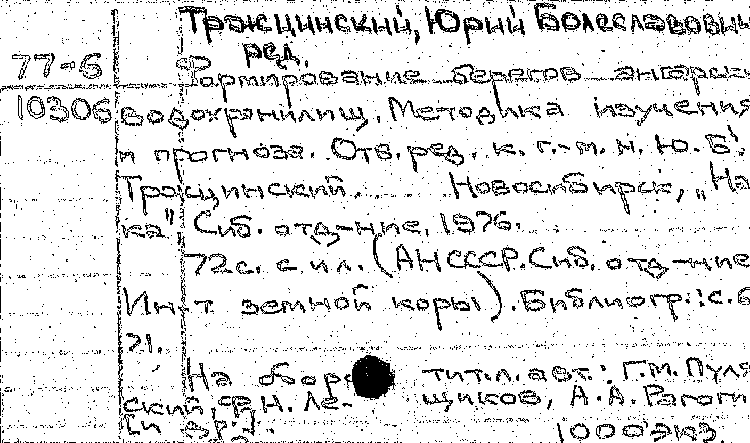 Тржцинский, Юрий Болеславович
ред.
77-6
Формирование берегов ангарск
10306 водохранилищ. Методика изучения
и прогноза. Отв. ред. к. г.-м. н. Ю. Б.
Тржцинский. Новосибирск, „На
ка" Сиб. отд-ние, 1976.
72 с. с ил. (АН СССР. Сиб. отд-ние
Ин-т земной коры). Библиогр.: с. 6
71.
На оборо титл. авт.: Г.М. Пуля
ский, Ф.Н. Ле- щиков, А.А. Рогози
и др.
1000 экз.